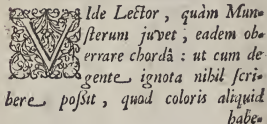 VIde Lector, quàm Mun-
sterum juvet; eadem ob-
errare chordâ: ut cum de
gente ignota nihil scri-
bere possit, quod coloris aliquid
habe-